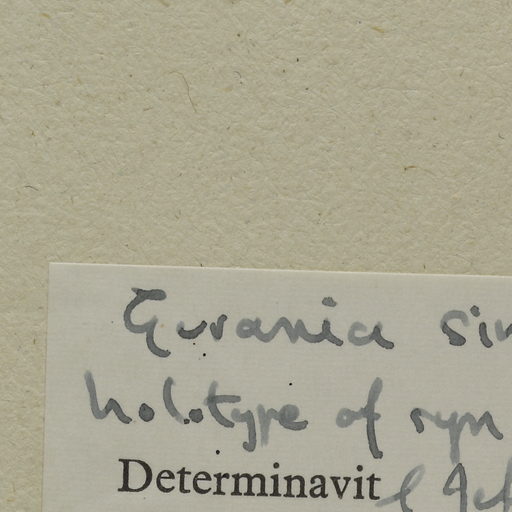 Gurania sin
holotype of syn
Determinavit C Jef